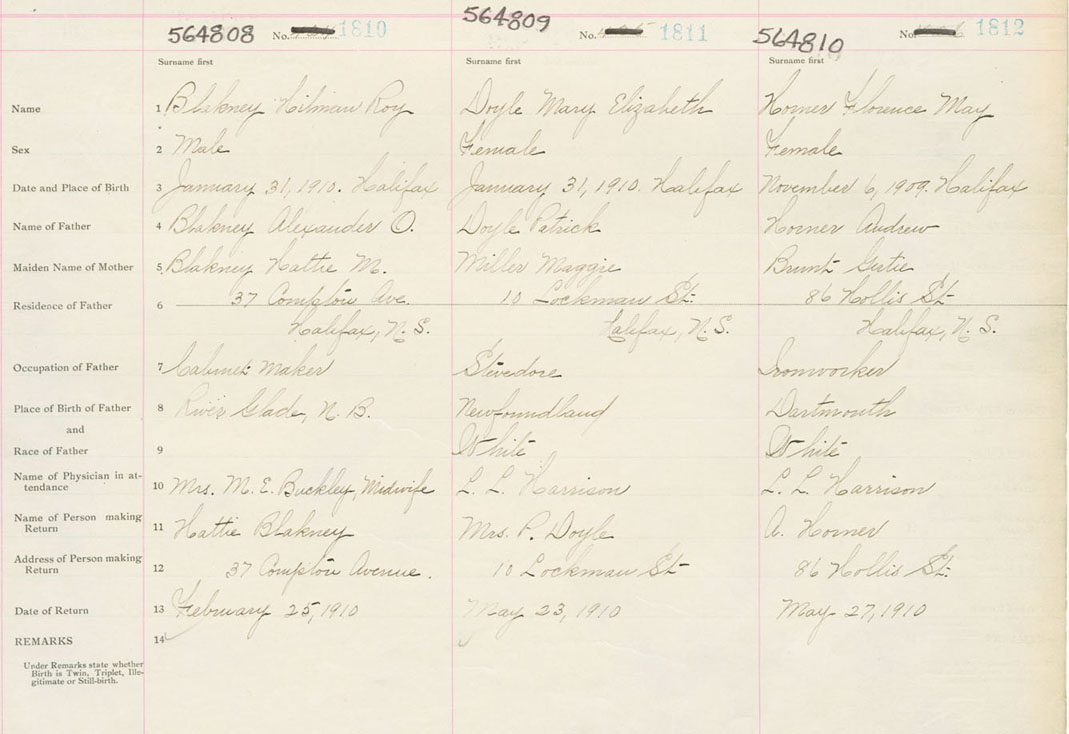 564808 No. 1810 564809 No. 1811 564810 No. 1812
Surname first Surname first Surname first
Name 1 Blakney Hilman Roy Doyle Mary Elizabeth Horner Florence May
Sex 2 Male Female Female
Date and Place of Birth 3 January 31, 1910. Halifax January 31, 1910. Halifax November 6, 1909. Halifax
Name of Father 4 Blakney Alexander O. Doyle Patrick Horner Andrew
Maiden Name of Mother 5 Blakney Hattie M. Miller Maggie Brunt Gertie
Residence of Father 6 37 Compton Ave. 10 Lockman St. 86 Hollis St.
Halifax, N.S. Halifax, N.S. Halifax, N.S.
Occupation of Father 7 Cabinet Maker Stevedore Ironworker
Place of Birth of Father 8 River Glade, N.B. Newfoundland Dartmouth
and
Race of Father 9 White White
Name of Physician in at-
tendance 10 Mrs. M. E. Buckley Midwife L. L. Harrison L. L. Harrison
Name of Person making
Return 11 Hattie Blakney Mrs. P. Doyle A. Horner
Address of Person making
Return 12 37 Compton Avenue. 10 Lockman St. 86 Hollis St.
Date of Return 13 February 25, 1910 May 23, 1910 May 27, 1910
REMARKS 14
Under Remarks state whether
Birth is Twin, Triplet, Ille-
gitimate or Still-birth.